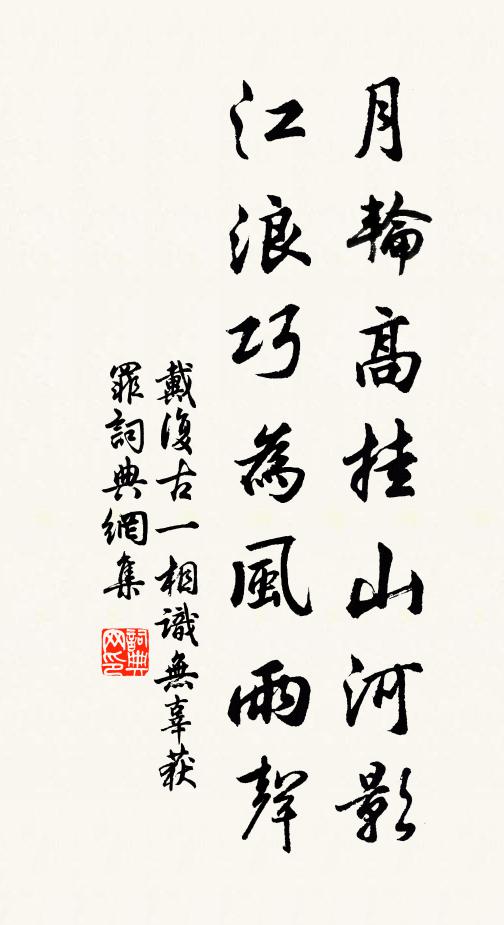 月輪高挂山河影
江浪巧為風雨聲
戴復古一相識無辜获
罪詞典網集
詞典网印